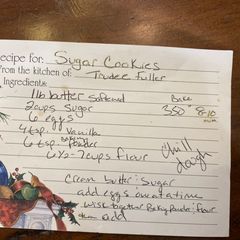 Recipe for: Sugar Cookies
From the kitchen of: Trudee Fuller
Ingredients:
1lb butter softened
Bake
2cups sugar
350° 8-10 min
6 eggs
4 tsp vanilla
6 tsp baking powder
6½-7cups flour
Chill dough
cream butter & sugar
add eggs one at a time
wisk together Baking Powder & flour
then add